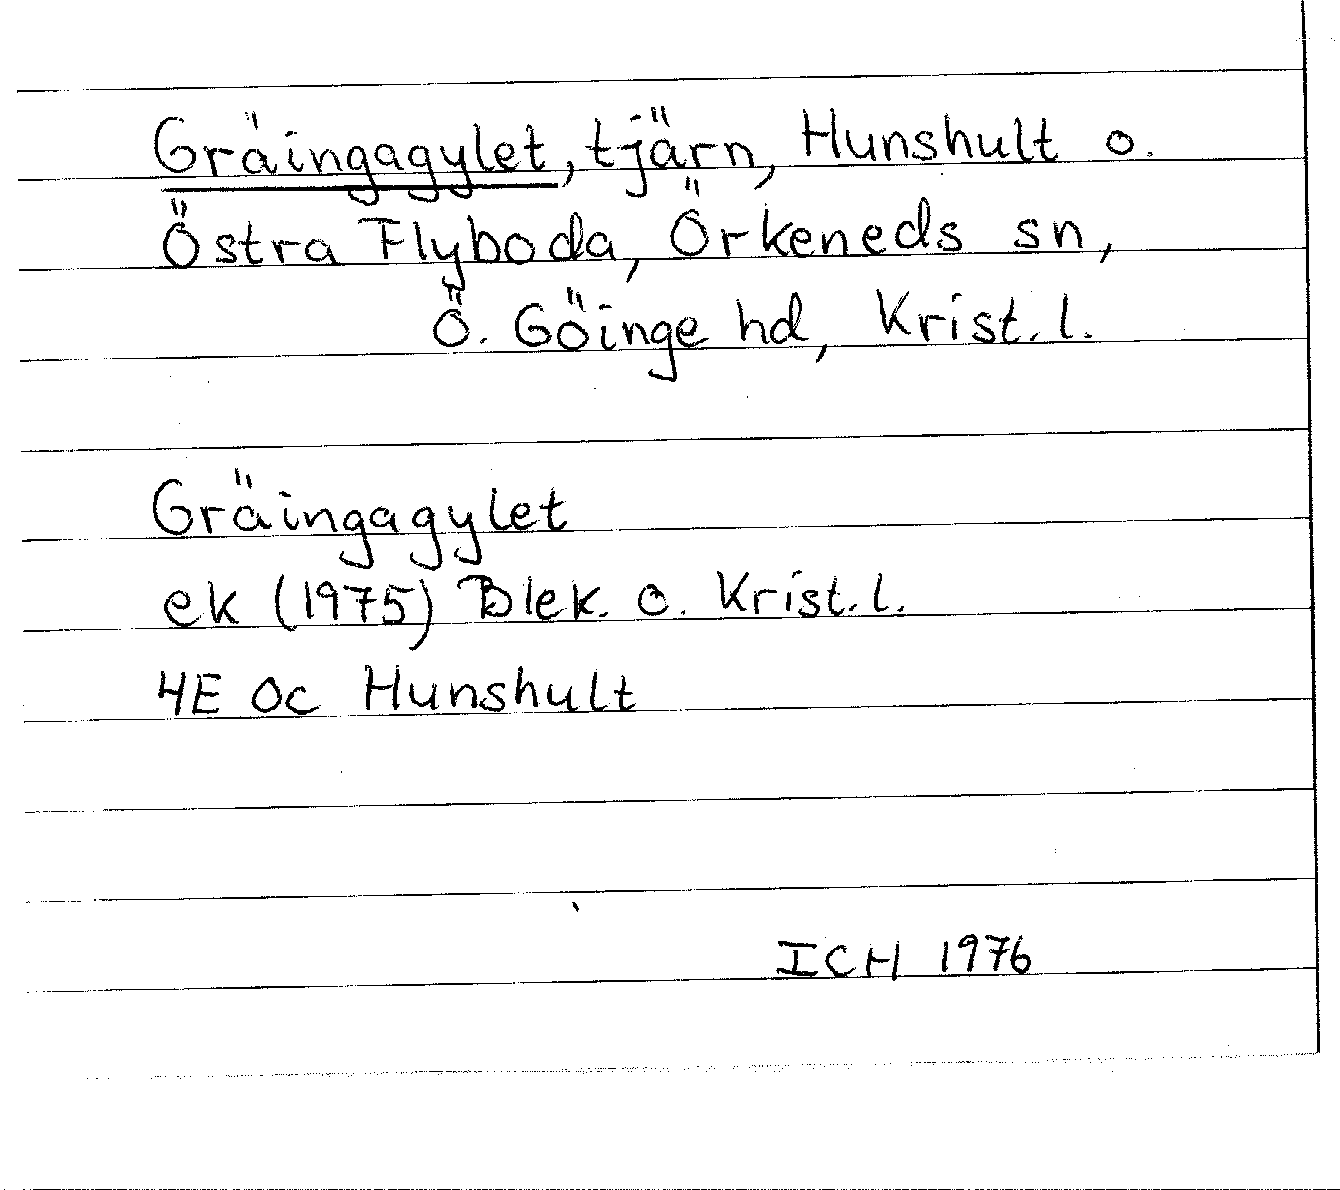 Gräingagylet, tjärn, Hunshult o.
Östra Flyboda, Örkeneds sn,
Ö. Göinge hd, Krist. l.
Gräingagylet
ek (1975) Blek. o. Krist. l.
4E 0c Hunshult
ICH 1976